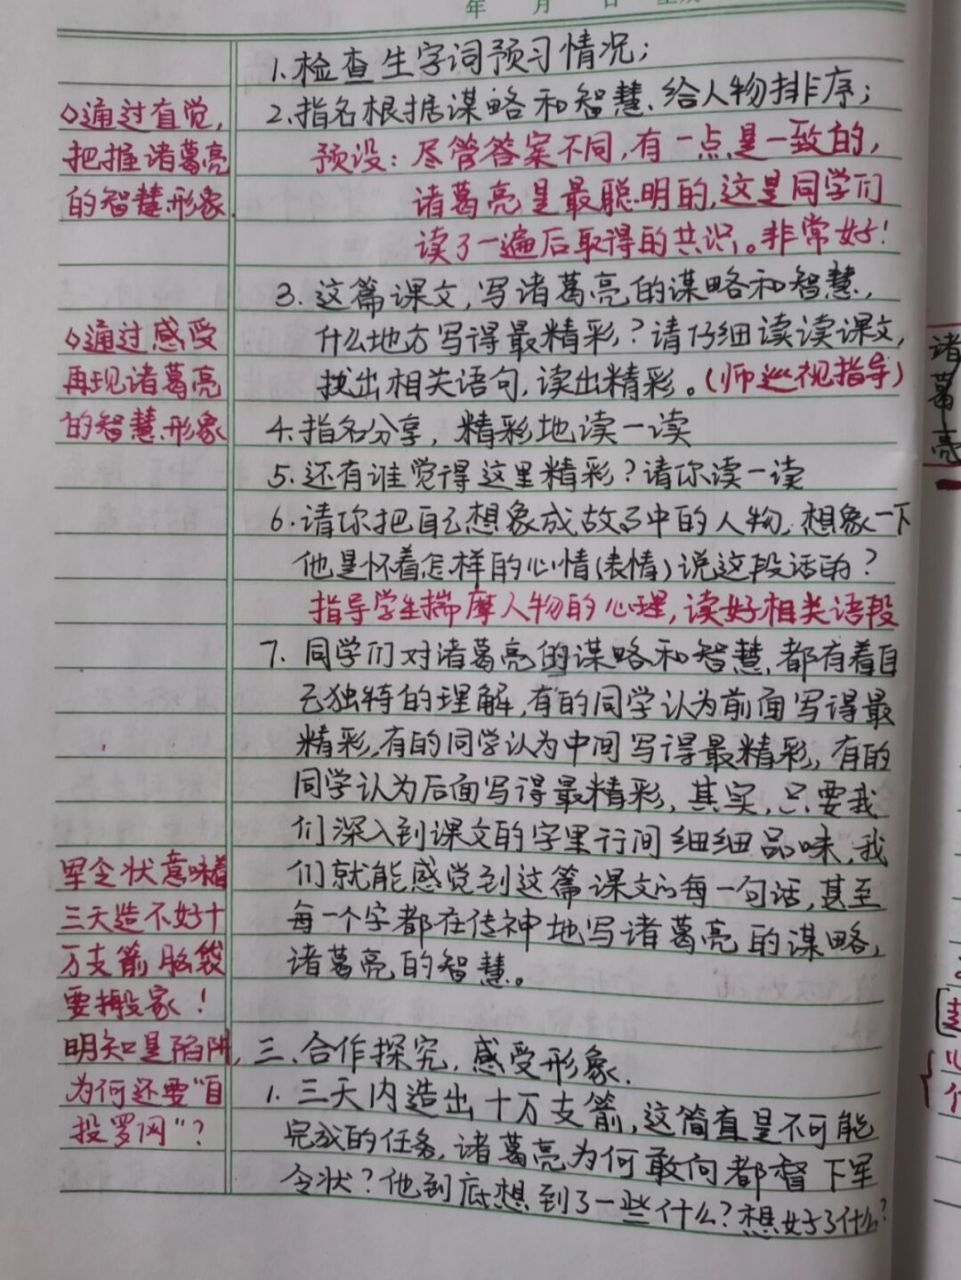 年 月 日
1.检查生字词预习情况；
2.指名根据谋略和智慧、给人物排序；
预设：尽管答案不同,有一点是一致的,
诸葛亮是最聪明的,这是同学们
读了一遍后取得的共识。非常好！
3.这篇课文,写诸葛亮的谋略和智慧,
什么地方写得最精彩？请仔细读读课文,
找出相关语句,读出精彩。(师巡视指导)
4.指名分享，精彩地读一读
5.还有谁觉得这里精彩？请你读一读
6.请你把自己想象成故事中的人物,想象一下
他是怀着怎样的心情(表情)说这段话的？
指导学生揣摩人物的心理,读好相关语段
7.同学们对诸葛亮的谋略和智慧,都有着自
己独特的理解,有的同学认为前面写得最
精彩,有的同学认为中间写得最精彩,有的
同学认为后面写得最精彩,其实,只要我
们深入到课文的字里行间细细品味,我
们就能感觉到这篇课文的每一句话,甚至
每一个字都在传神地写诸葛亮的谋略,
诸葛亮的智慧。
三、合作探究,感受形象.
1.三天内造出十万支箭,这简直是不可能
完成的任务,诸葛亮为何敢向都督下军
令状？他到底想到了一些什么？想好了什么？
◇通过直觉,
把握诸葛亮
的智慧形象.
◇通过感受
再现诸葛亮
的智慧形象
军令状意味着
三天造不好十
万支箭脑袋
要搬家！
明知是陷阱,
为何还要“自
投罗网”？
诸葛亮